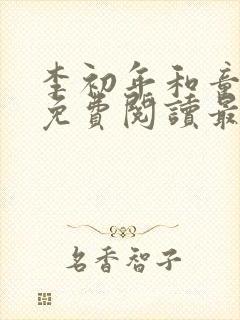 李初年和章
免費閱讀最
名香智子